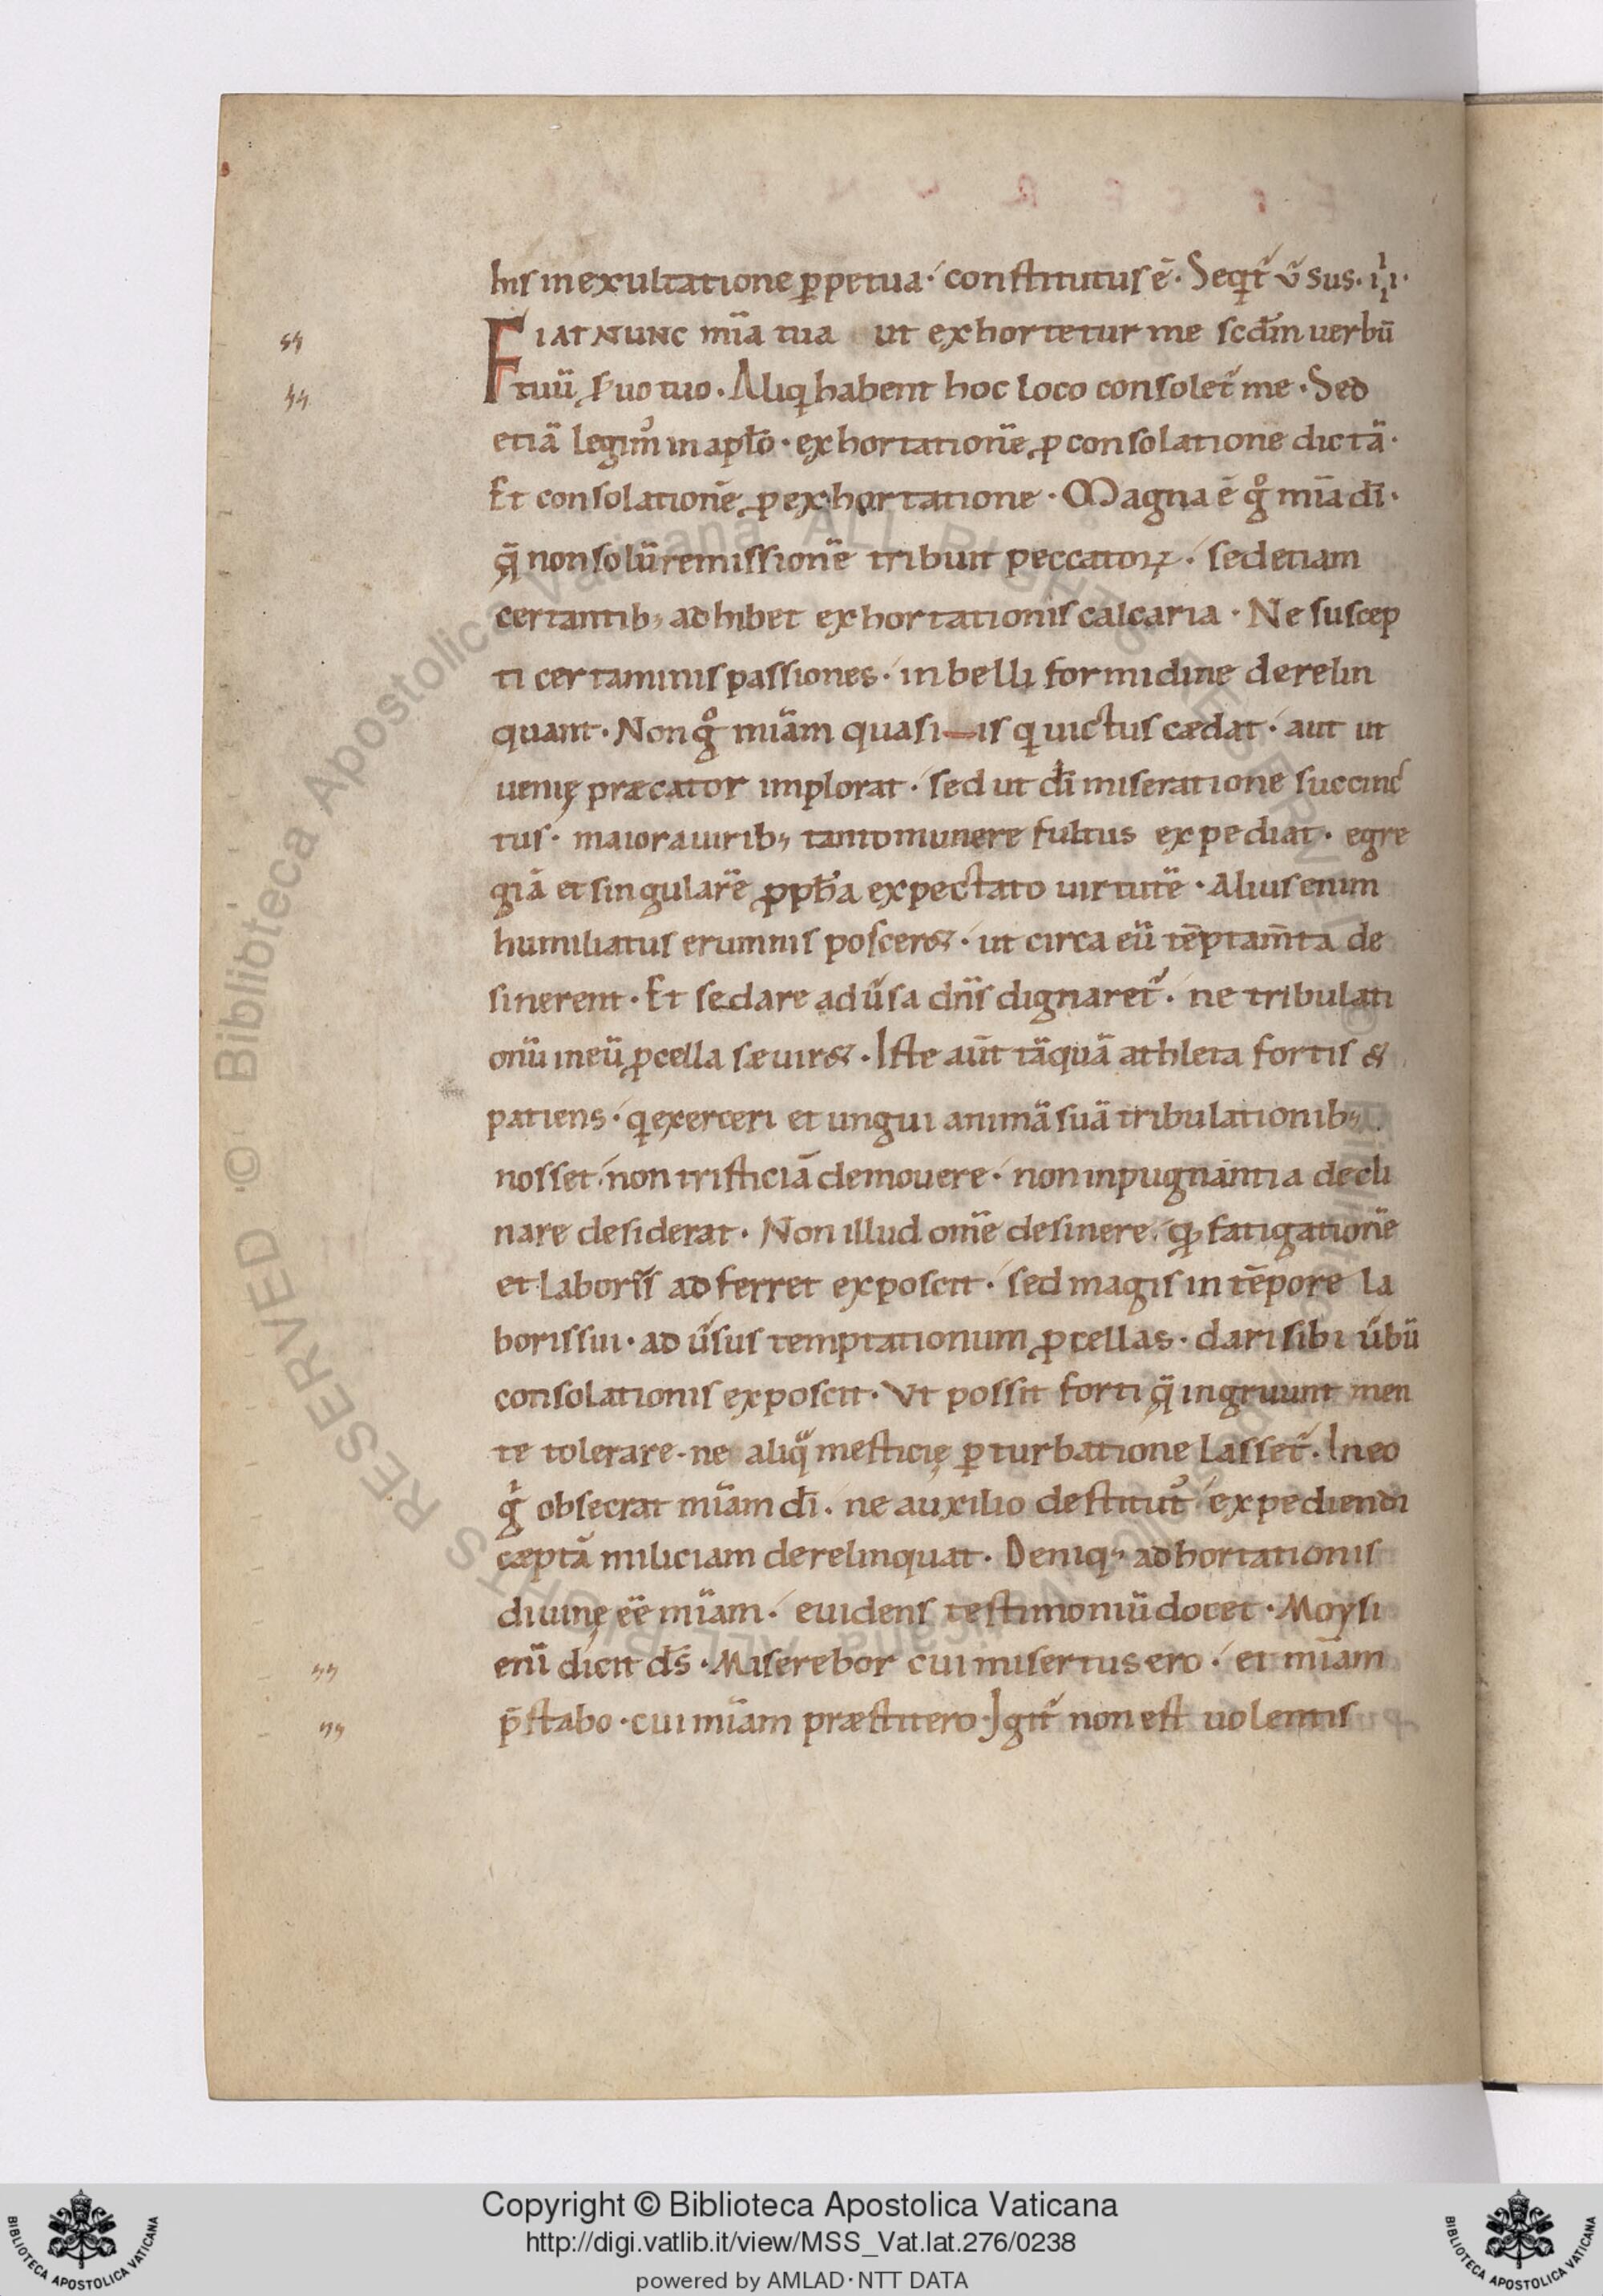 hiſ in exultatione ꝑpetua· conſtitutuſ ē· Seqt̃ ũsus· iii·
FIAT NUNC mĩa tua ut exhortetur me ſcd̃m uerbũ
tuũ ſeruo tuo· Aliqi habent hoc loco conſolet̃ me· Sed
etiã legim᷒ in apl̃o· exhortationẽ ꝓ conſolatione dictã·
Et conſolationẽ ꝓ exhortatione· Magna ē gͦ mĩa dĩ·
q̃ non ſolũ remiſſionẽ tribuit peccatoꝝ· ſed etiam
certantib; adhibet exhortationiſ calcaria· Ne ſuſcep
ti certaminiſ paſſiones· in belli formidine derelin
quant· Non gͦ mĩam quaſi iſ qi uictuſ cædat· aut ut
uenię præcator implorat· ſed ut dĩ miſeratione ſuccinc
tuſ· maiora uirib; tanto munere fultus expediat· egre
giã et ſingularẽ ꝓph̃a expectato uirtutẽ· Aliuſ enim
humiliatuſ erumniſ poſcer&· ut circa eũ tẽptam̃ta de
ſinerent· Et ſedare adũſa dñſ dignaret̃· ne tribulati
onũ in eũ ꝓcella ſæuir&· Iſte aũt tãquã athleta fortiſ &
patiens· qi exerceri et ungui animã ſuã tribulationib;
noſſet· non triſticiã demouere· non inpugnantia decli
nare deſiderat· Non illud om̃e deſinere· qđ fatigationẽ
et laboriſ adferret expoſcit· ſed magiſ in tẽpore la
boriſ ſui· adũſus temptationum ꝓcellas· dari ſibi ũbũ
conſolationiſ expoſcit· Ut poſſit forti q̃ ingruunt men
te tolerare· ne aliq̃ meſticię ꝑturbatione laſſet̃· In eo
gͥ obſecrat mĩam dĩ· ne auxilio deſtitut᷒ expediendi
cæptã miliciam derelinquat· Deniq; adhortationiſ
diuinę eẽ mĩam· euidenſ teſtimoniũ docet· Moyſi
enĩ dicit dſ̃· Miſerebor cui miſertuſ ero· et mĩam
p̃ſtabo· cui mĩam præſtitero· Igit̃ non eſt uolentiſ
Copyright © Biblioteca Apostolica Vaticana
http://digi.vatlib.it/view/MSS_Vat.lat.276/0238
powered by AMLAD·NTT DATA
BIBLIOTECA APOSTOLICA VATICANA
BIBLIOTECA APOSTOLICA VATICANA